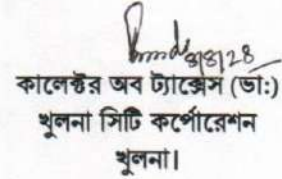 ৪/৪/২৪
কালেক্টর অব ট্যাক্সেস (ভাঃ)
খুলনা সিটি কর্পোরেশন
খুলনা।